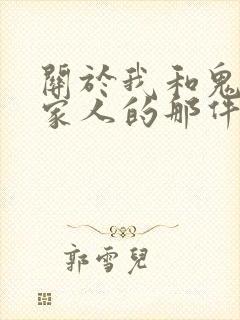 關於我和鬼
家人的那件
郭雪兒